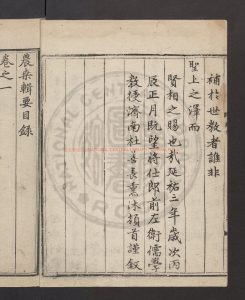 補於世教者誰非
聖上之澤而
賢相之賜也哉延祐三年歲次丙
辰正月既望將仕郎前左衛儒學
教授濟南杜善長熏沐頓首謹叙
農桑輯要目錄
卷之一